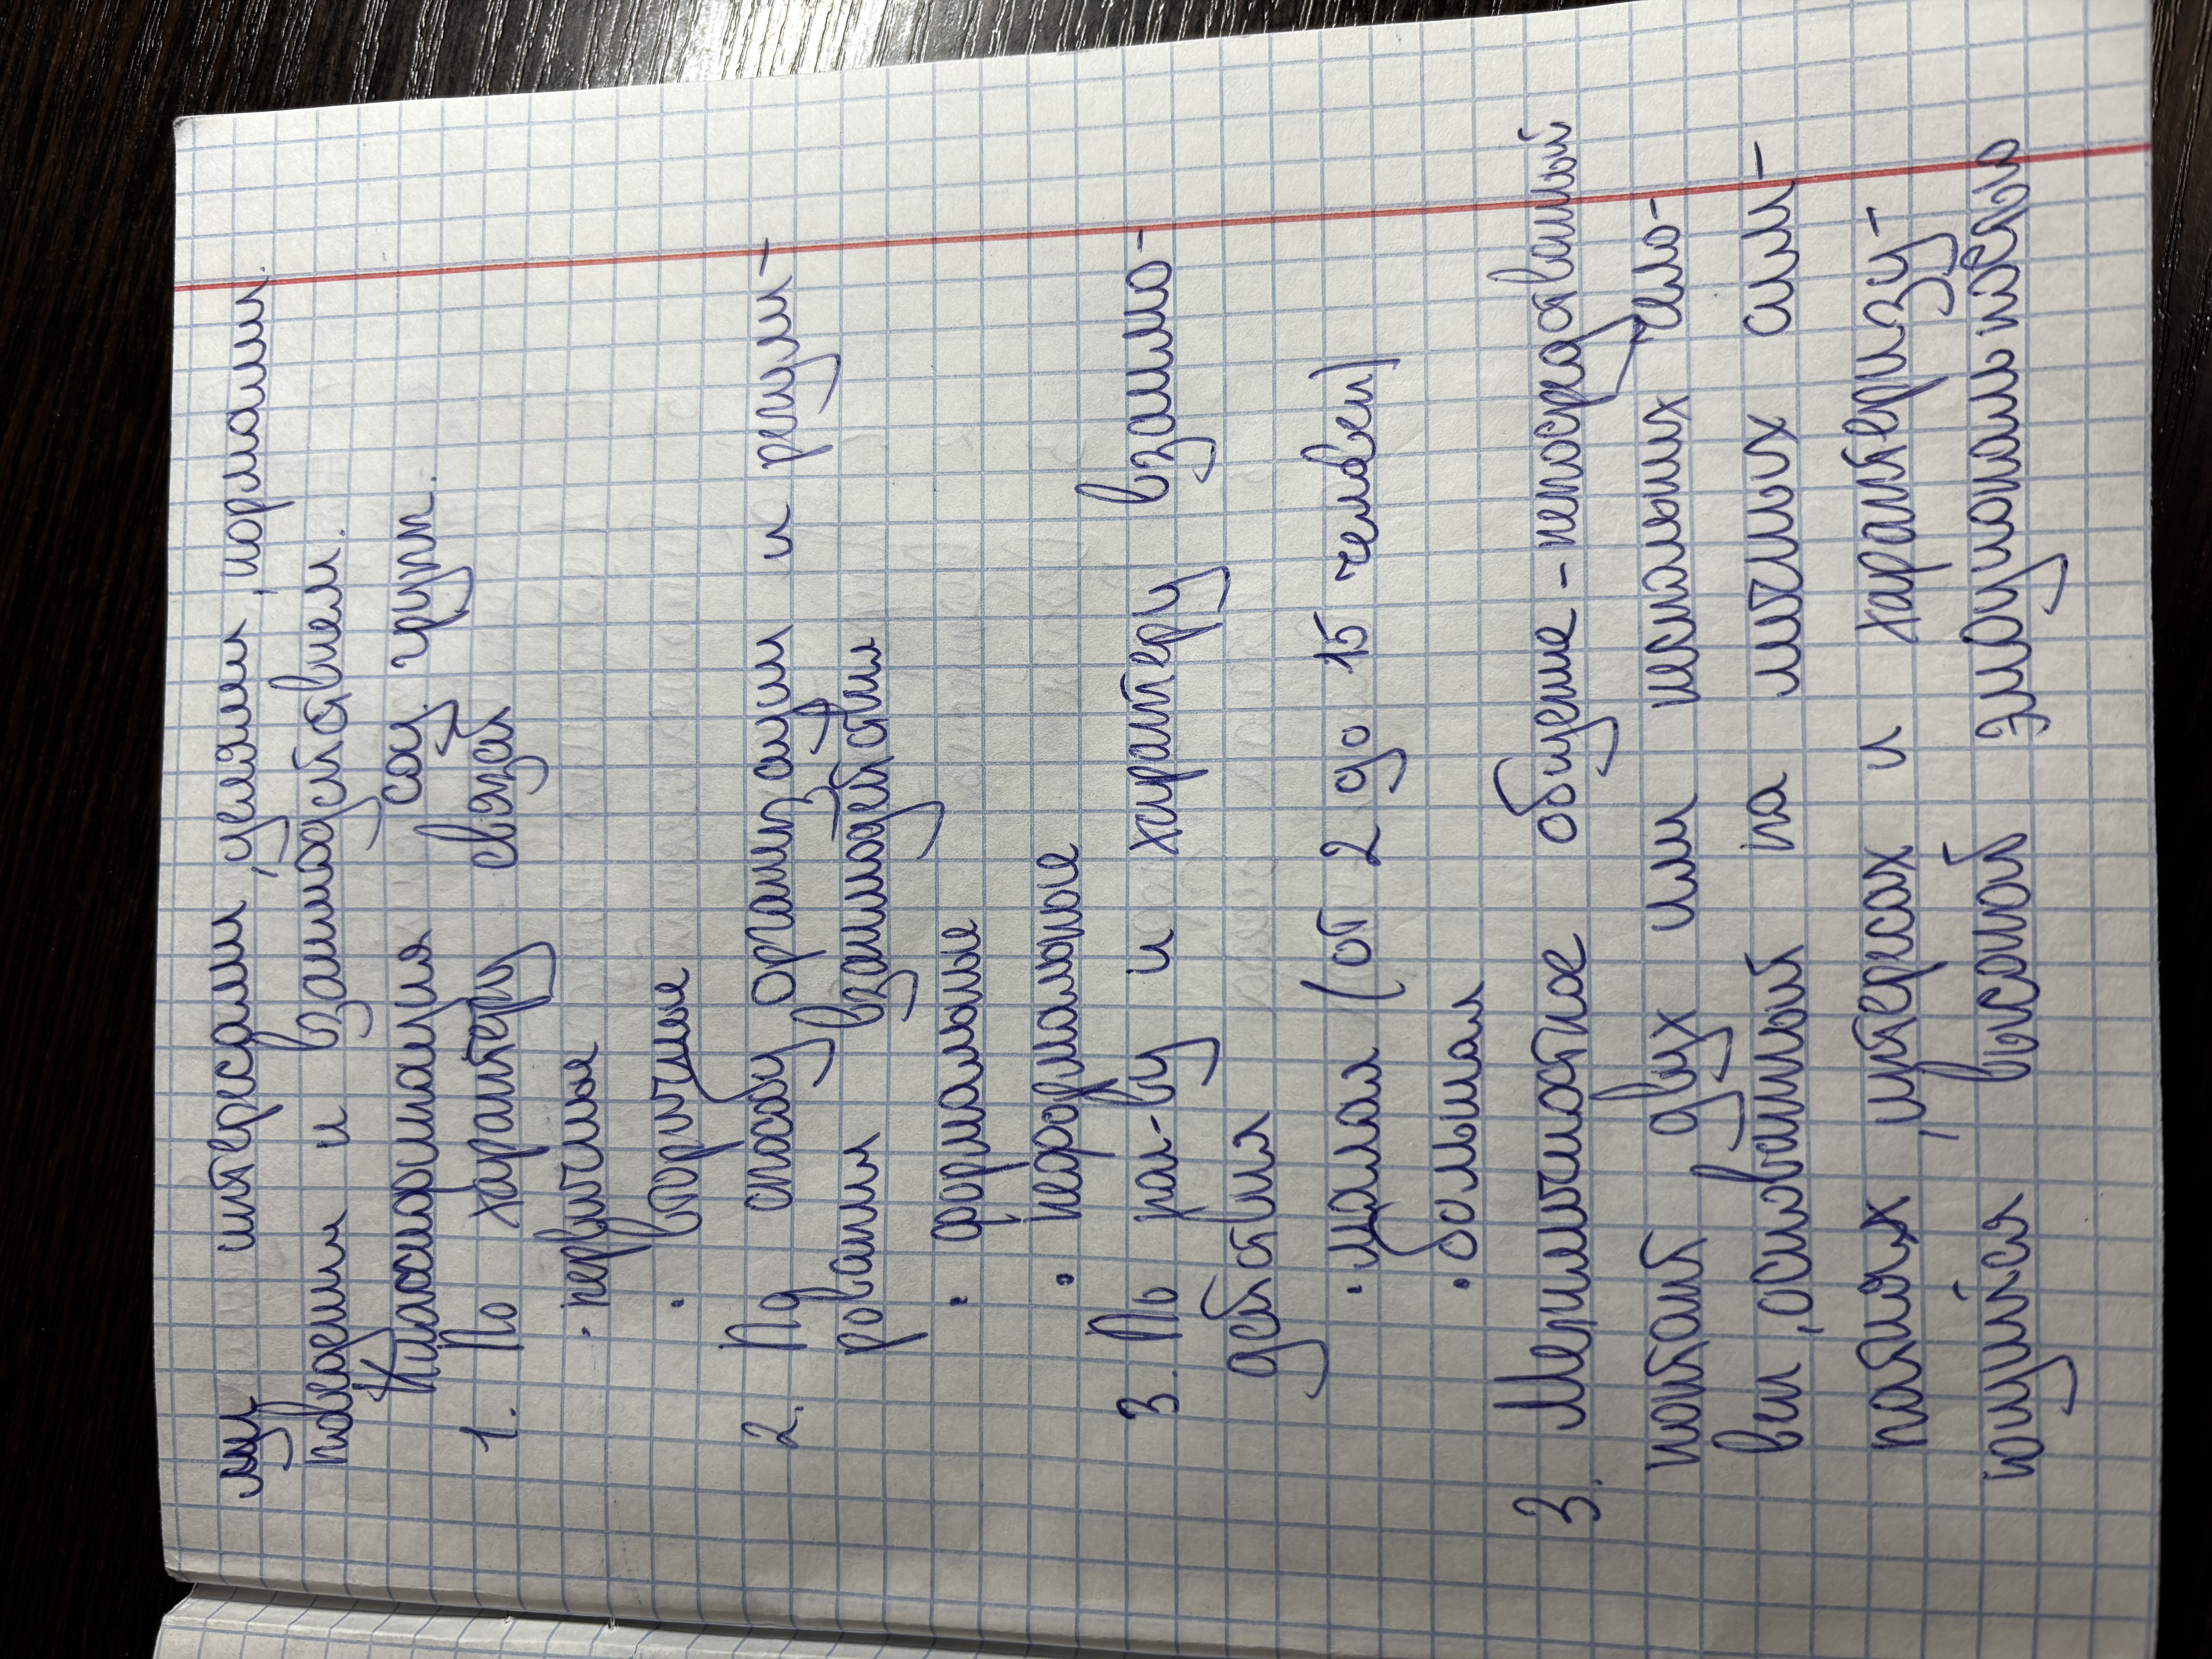 ми интересами, целями, нормами
поведения и взаимодействием.
Классификация соц. групп.
1. По характеру связей
· первичные
· вторичные
2. По способу организации и регули-
рования взаимодействия
· формальные
· неформальные
3. По кол-ву и характеру взаимо-
действия
· малая (от 2 до 15 человек)
· большая
3. Межличностное общение - непосредственный
контакт двух или нескольких чело-
век, основанный на личных сим-
патиях, интересах и характеризу-
ющийся высокой эмоциональностью